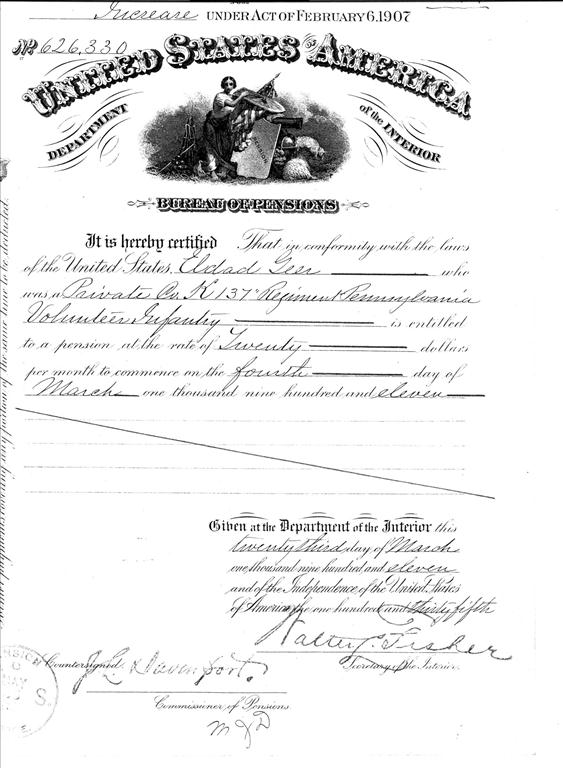 Increase UNDER ACT OF FEBRUARY 6, 1907
No. 626,330
UNITED STATES OF AMERICA
DEPARTMENT of the INTERIOR
BUREAU OF PENSIONS
It is hereby certified That in conformity with the laws
of the United States, Eldad Geer who
was a Private Co. K 137" Regiment Pennsylvania
Volunteer Infantry is entitled
to a pension at the rate of Twenty dollars
per month to commence on the fourth day of
March one thousand nine hundred and eleven
Given at the Department of the Interior this
twenty third day of March
one thousand nine hundred and eleven
and of the Independence of the United States
of America the one hundred and thirty fifth
Walter L. Fisher
Secretary of the Interior.
Countersigned,
J L Davenport.
Commissioner of Pensions